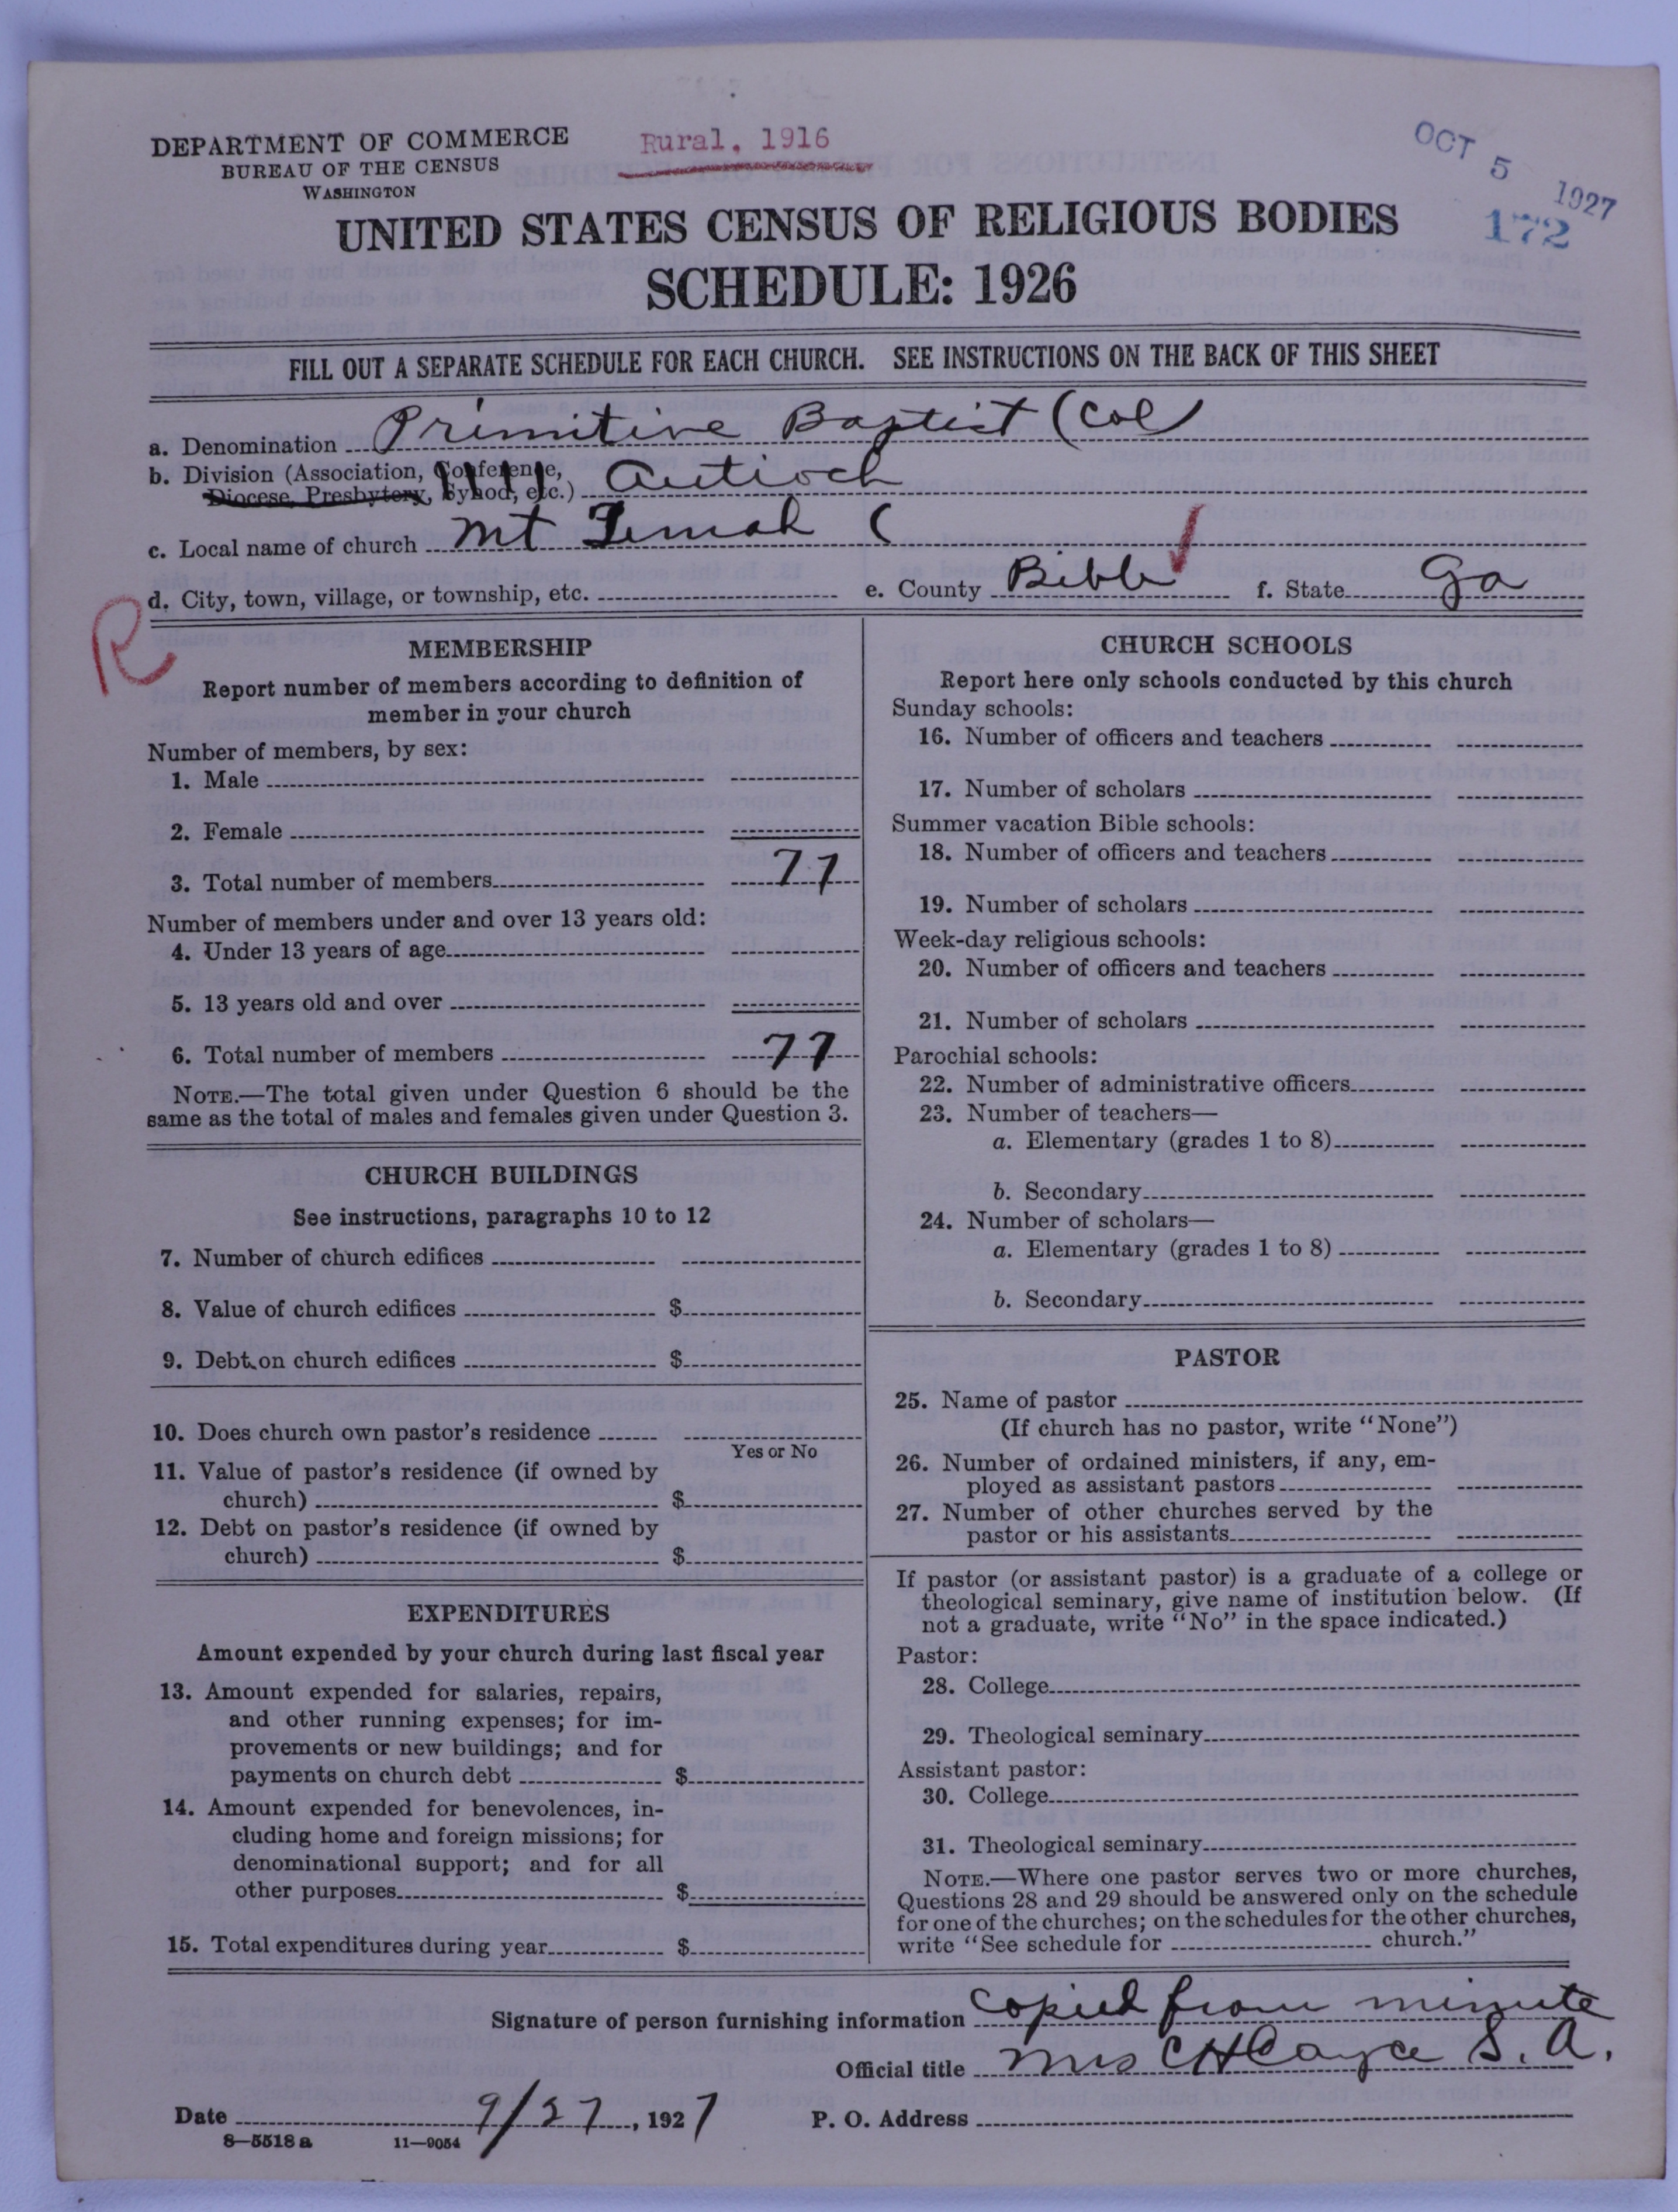 DEPARTMENT OF COMMERCE
BUREAU OF THE CENSUS
WASHINGTON
Rural, 1916
OCT 5 1927
172
UNITED STATES CENSUS OF RELIGIOUS BODIES
SCHEDULE: 1926
FILL OUT A SEPARATE SCHEDULE FOR EACH CHURCH. SEE INSTRUCTIONS ON THE BACK OF THIS SHEET
a. Denomination Primitive Baptist (Col
b. Division (Association, Conference,
Diocese, Presbytery, Synod, etc.) Antioch
c. Local name of church Mt (
d. City, town, village, or township, etc. e. County Bibb f. State Ga
R
MEMBERSHIP
Report number of members according to definition of
member in your church
Number of members, by sex:
1. Male
2. Female
3. Total number of members 77
Number of members under and over 13 years old:
4. Under 13 years of age
5. 13 years old and over
6. Total number of members 77
NOTE.—The total given under Question 6 should be the
same as the total of males and females given under Question 3.
CHURCH BUILDINGS
See instructions, paragraphs 10 to 12
7. Number of church edifices
8. Value of church edifices $
9. Debt on church edifices $
10. Does church own pastor's residence
Yes or No
11. Value of pastor's residence (if owned by
church) $
12. Debt on pastor's residence (if owned by
church) $
EXPENDITURES
Amount expended by your church during last fiscal year
13. Amount expended for salaries, repairs,
and other running expenses; for im-
provements or new buildings; and for
payments on church debt $
14. Amount expended for benevolences, in-
cluding home and foreign missions; for
denominational support; and for all
other purposes $
15. Total expenditures during year $
CHURCH SCHOOLS
Report here only schools conducted by this church
Sunday schools:
16. Number of officers and teachers
17. Number of scholars
Summer vacation Bible schools:
18. Number of officers and teachers
19. Number of scholars
Week-day religious schools:
20. Number of officers and teachers
21. Number of scholars
Parochial schools:
22. Number of administrative officers
23. Number of teachers—
a. Elementary (grades 1 to 8)
b. Secondary
24. Number of scholars—
a. Elementary (grades 1 to 8)
b. Secondary
PASTOR
25. Name of pastor
(If church has no pastor, write "None")
26. Number of ordained ministers, if any, em-
ployed as assistant pastors
27. Number of other churches served by the
pastor or his assistants
If pastor (or assistant pastor) is a graduate of a college or
theological seminary, give name of institution below. (If
not a graduate, write "No" in the space indicated.)
Pastor:
28. College
29. Theological seminary
Assistant pastor:
30. College
31. Theological seminary
NOTE.—Where one pastor serves two or more churches,
Questions 28 and 29 should be answered only on the schedule
for one of the churches; on the schedules for the other churches,
write "See schedule for church."
Signature of person furnishing information copied from minute
Official title Mrs C H Cayce S. A.
Date 9/27, 1927 P. O. Address
8—5518 a 11—9054